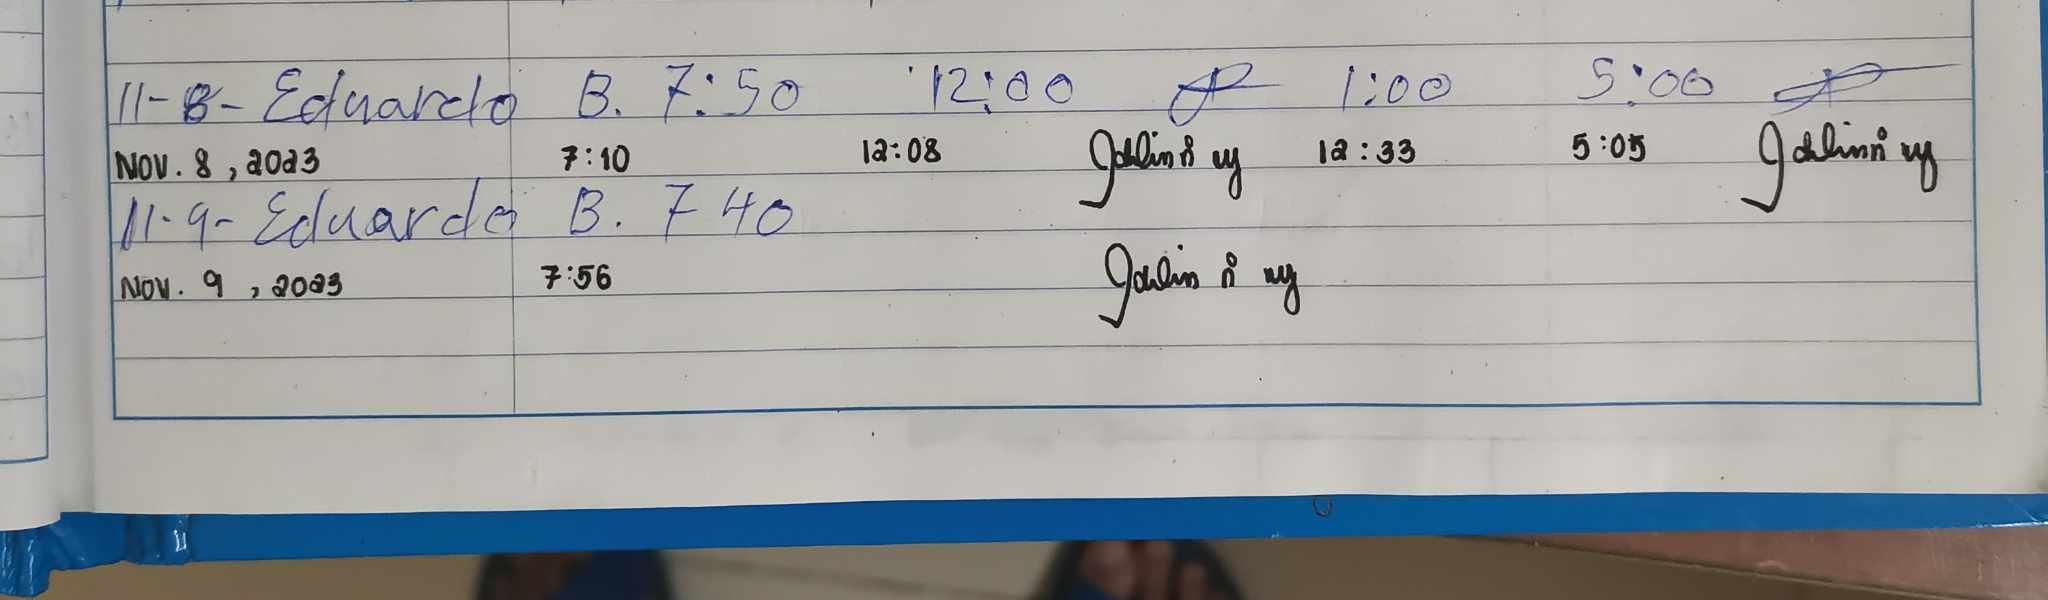 11-8- Eduardo B. 7:50 12:00 1:00 5:00
Nov. 8, 2023 7:10 12:08 12:33 5:05
11-9- Eduardo B. 7 40
Nov. 9, 2023 7:56